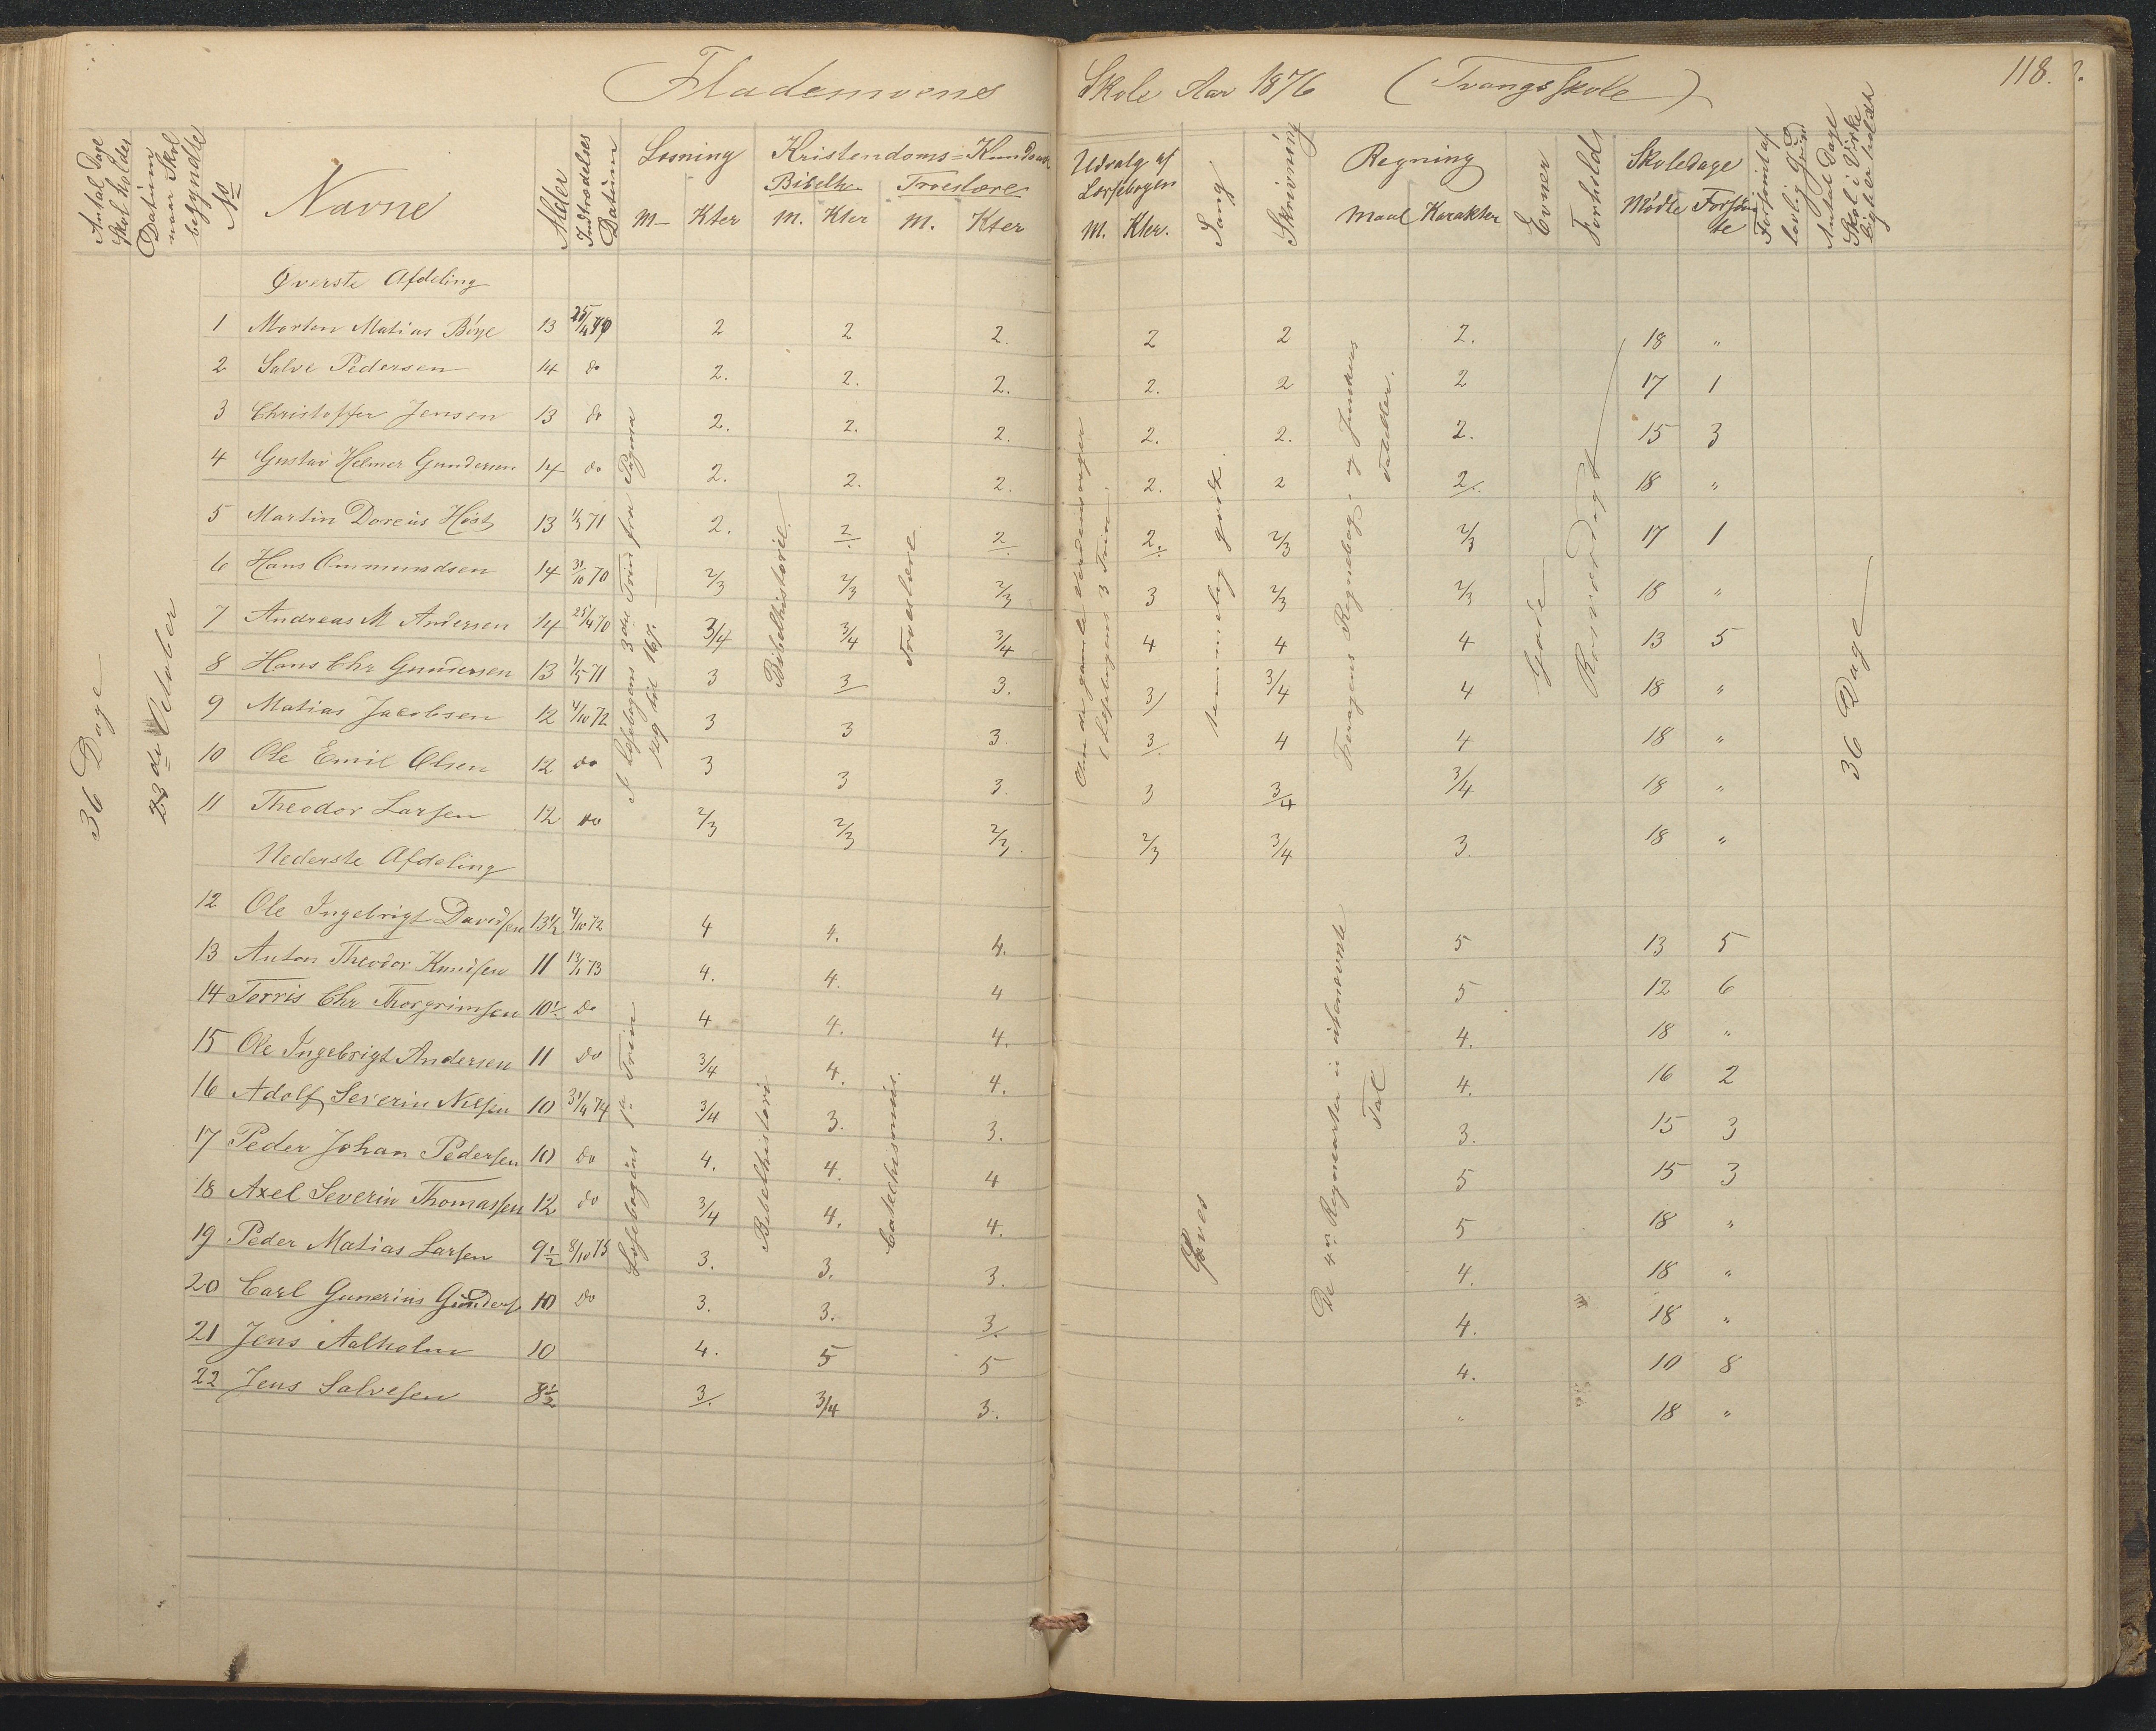 Flademoens Skole Aar 1876 (Tvangsskole) 118.
Antal Dage Skol holdes
Datum naar Skol begyndte
No
Navne
Alder
Indtrædelses Datum
Læsning M Kter
Kristendoms=Kundsk
Bibelh M. Kter
Troeslære M. Kter
Udvalg af Læsebogen M. Kter.
Sang
Skrivning
Regning Maal Karakter
Evner
Forhold
Skoledage Mødte Forsømte
Forsømt af lovlig Grund
Antal Dage Skol i Virkeligh er holdt
36 Dage
23 de October
Øverste Afdeling
1 Morten Matias Bøye 13 25/4 70 2 2 2. 2 2 2. 18 "
2 Salve Pedersen 14 do 2. 2. 2. 2. 2 2 17 1
3 Christoffer Jensen 13 do 2. 2. 2. 2. 2. 2. 15 3
4 Gustav Helmer Gundersen 14 do 2. 2. 2. 2. 2 2. 18 "
5 Martin Doreus Høst 13 1/5 71 2. 2 2 2. 2/3 2/3 17 1
6 Hans Ommundsen 14 31/10 70 2/3 2/3 2/3 3 2/3 2/3 18 "
7 Andreas M Andersen 14 25/4 70 3/4 3/4 3/4 4 4 4 13 5
8 Hans Chr Gundersen 13 1/5 71 3 3 3. 3 3/4 4 18 "
9 Matias Jacobsen 12 4/10 72 3 3 3. 3. 4 4 18 "
10 Ole Emil Olsen 12 do 3 3 3. 3 3/4 3/4 18 "
11 Theodor Larsen 12 do 2/3 2/3 2/3. 2/3 3/4 3. 18 "
I Læsebogens 3die Trin fra Pagina 129 til 167.
Bibelhistorie.
Troeslære.
I Læsebogens 3 Trin.
temmelig godt.
Regnebog og Tabeller.
Gode
Rosværdigt
36 Dage
Nederste Afdeling
12 Ole Ingebrigt Davidsen 13½ 4/10 72 4 4. 4. 5 13 5
13 Anton Theodor Knudsen 11 13/1 73 4. 4. 4 5 12 6
14 Terris Chr Thorgrimsen 10½ do 4 4. 4. 4. 18 "
15 Ole Ingebrigt Andersen 11 do 3/4 4. 4. 4. 16 2
16 Adolf Severin Nilsen 10 31/4 74 3/4 3. 3. 3. 15 3
17 Peder Johan Pedersen 10 do 4. 4. 4 5 15 3
18 Axel Severin Thomassen 12 do 3/4 4. 4. 5 18 "
19 Peder Matias Larsen 9½ 8/10 75 3. 3. 3. 4. 18 "
20 Carl Gunerius Gunders 10 do 3. 3. 3. 4. 18 "
21 Jens Aalholm 10 4. 5 5 4. 10 8
22 Jens Salvesen 8½ 3. 3/4 3. " 18 "
Læsebogens 1ste Trin
Bibelhistorie
Catechismus.
Øves
De 4 Regnearter i ubenævnte Tal